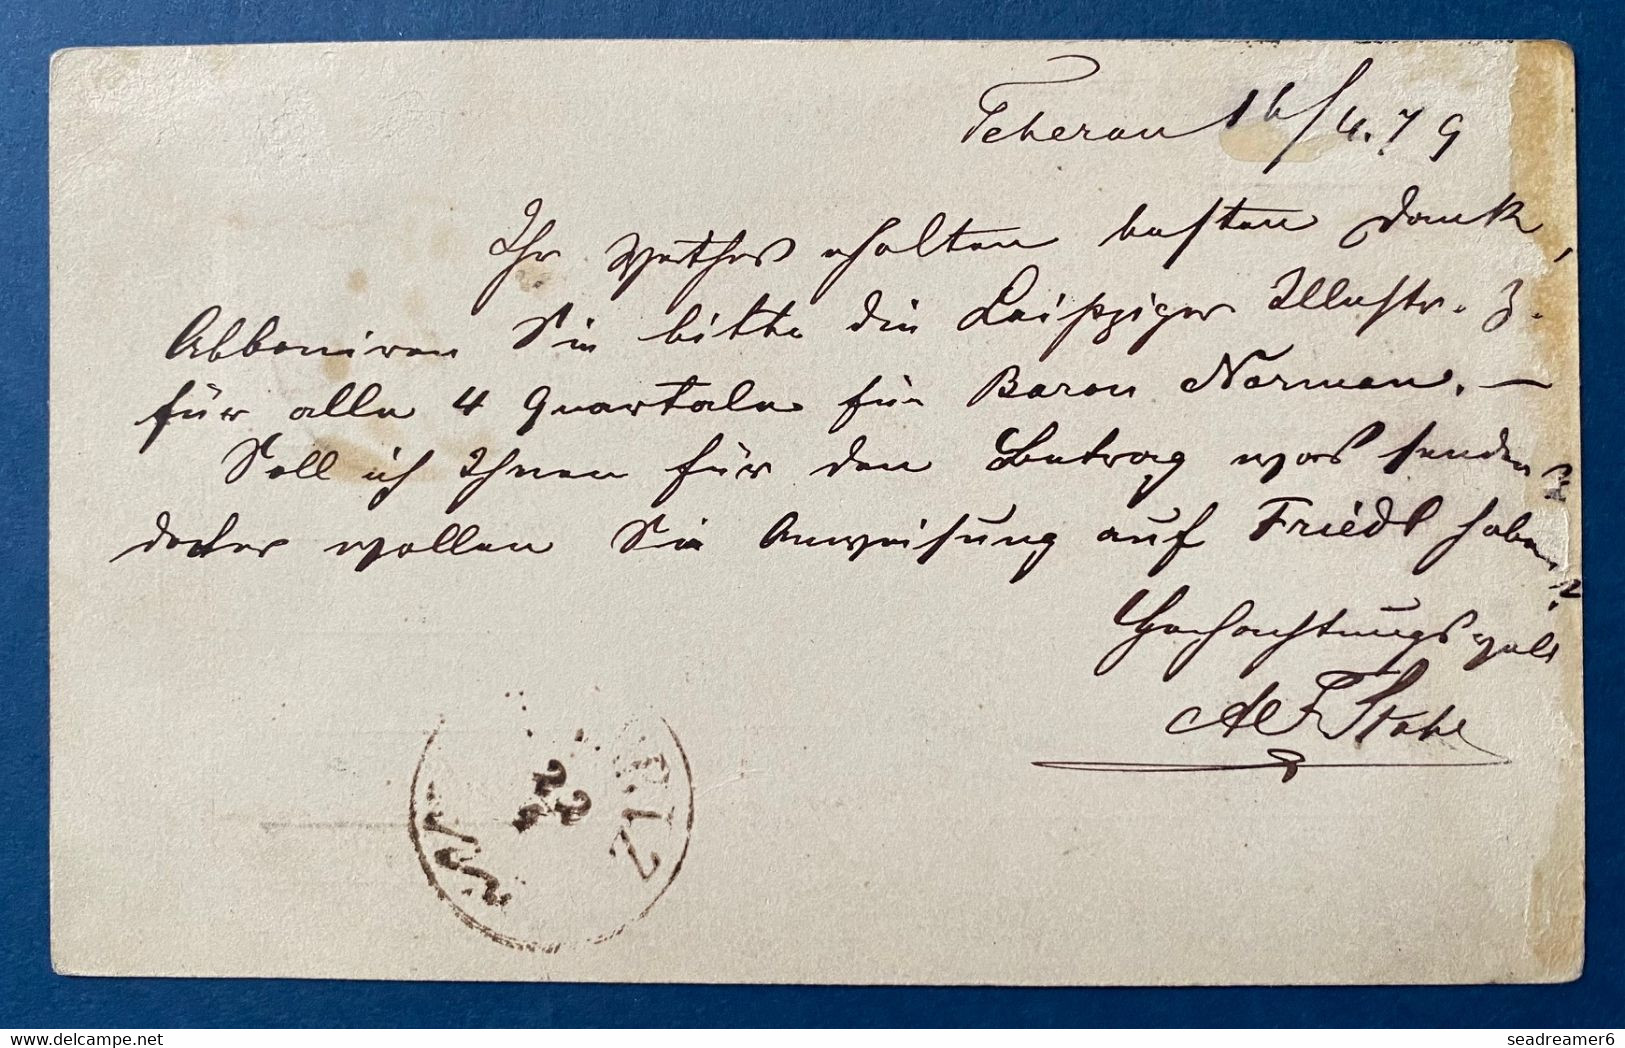 Teheran 16/4.79
Ihr Werthes erhalten besten Dank,
Abboniren Sie bitte die Leipziger Illustr. Z.
für alle 4 Quartale für Baron Norman. —
Soll ich Ihnen für den Betrag was senden?
oder wollen Sie Anweisung auf Friedl haben?
Hochachtungsvoll
AF Stahl
22
4
seadreamer6
www.delcampe.net